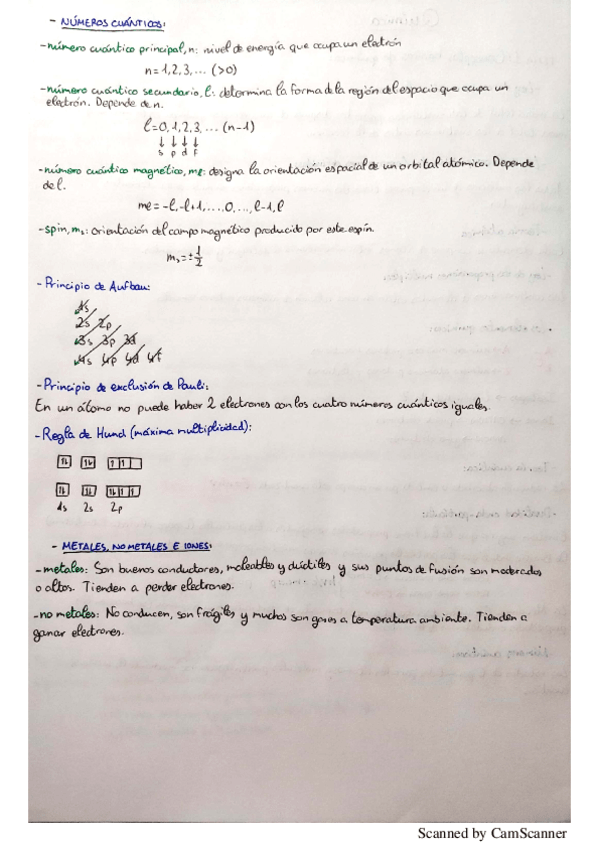 - NÚMEROS CUÁNTICOS:
-número cuántico principal, n: nivel de energía que ocupa un electrón
n=1,2,3,... (>0)
-número cuántico secundario, l: determina la forma de la región del espacio que ocupa un
electrón. Depende de n.
l=0,1,2,3,... (n-1)
↓ ↓ ↓ ↓
s p d f
-número cuántico magnético, ml: designa la orientación espacial de un orbital atómico. Depende
de l.
ml=-l,-l+1,...,0,...,l-1,l
-spin, ms: orientación del campo magnético producido por este espín.
ms=±1/2
-Principio de Aufbau:
1s
2s 2p
3s 3p 3d
4s 4p 4d 4f
-Principio de exclusión de Pauli:
En un átomo no puede haber 2 electrones con los cuatro números cuánticos iguales.
-Regla de Hund (máxima multiplicidad):
1s 2s 2p
- METALES, NO METALES E IONES:
-metales: Son buenos conductores, maleables y dúctiles y sus puntos de fusión son moderados
o altos. Tienden a perder electrones.
-no metales: No conducen, son frágiles y muchos son gases a temperatura ambiente. Tienden a
ganar electrones.
Scanned by CamScanner